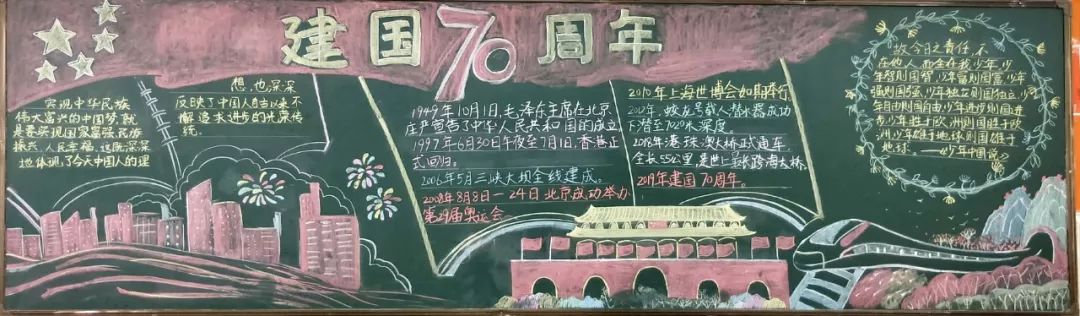 建国70周年
实现中华民族
伟大富兴的中国梦,就
是要实现国家富强、民族
振兴、人民幸福,这既深深
地体现了今天中国人的理
想,也深深
反映了中国人自古以来不
懈追求进步的光荣传
统。
1949年10月1日,毛泽东主席在北京
庄严宣告了中华人民共和国的成立
1997年6月30日午夜至7月1日,香港正
式回归。
2006年5月三峡大坝全线建成。
2008年8月8日一24日北京成功举办
第29届奥运会
2010年上海世博会如期举行
2012年,蛟龙号载人潜水器成功
下潜至7020米深度。
2018年港珠澳大桥正式通车,
全长55公里,是世上最长跨海大桥。
2019年建国70周年。
故今日之责任,不
在他人,而全在我少年,少
年智则国智,少年富则国富,少年
强则国强,少年独立则国独立,少
年自由则国自由,少年进步则国进
步,少年胜于欧洲则国胜于欧
洲,少年雄于地球,则国雄于
地球。——《少年中国说》